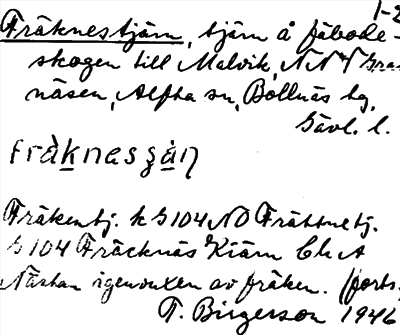 1-2
Fräknestjärn, tjärn å fäbode-
skogen till Malvik, N N V Gras-
näsen, Alfta sn, Bollnäs hg,
Gävl. l.
fràknasɡàn
Fräkentj. k G 104 NO Fräkknetj.
G 104 Fräcknäs Kiärn Ch A
Nästan igenvuxen av fräken. (forts.
T. Birgerson 1946